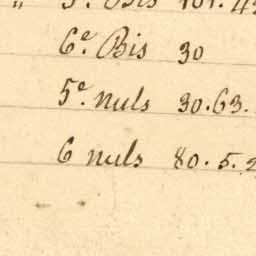 " 5ᵉ. Bis 101.
6ᵉ. Bis 30
5ᵉ. nuls 30.63.
6 nuls 80.5.2